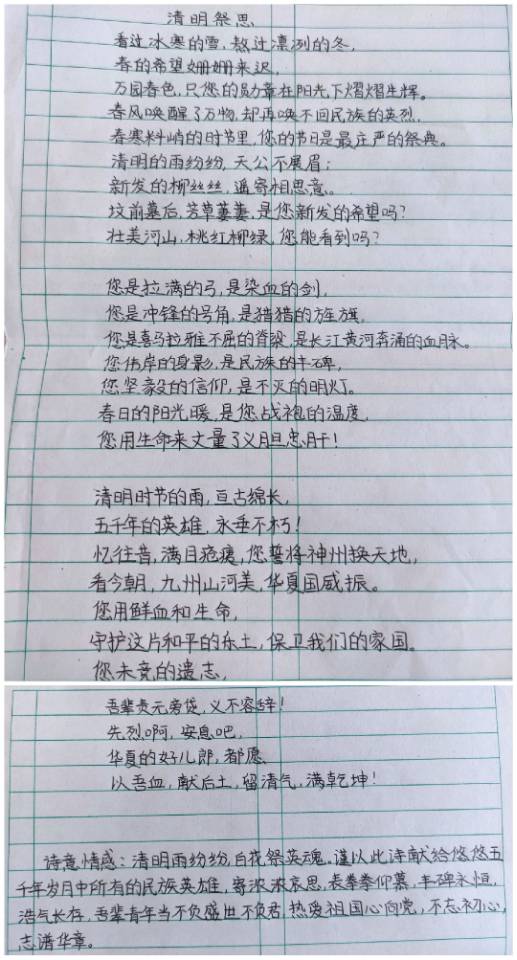 清明祭思
看过冰寒的雪,熬过凛冽的冬,
春的希望姗姗来迟,
万园春色,只您的勋章在阳光下熠熠生辉。
春风唤醒了万物,却再唤不回民族的英烈,
春寒料峭的时节里,您的节日是最庄严的祭典。
清明的雨纷纷,天公不展眉;
新发的柳丝丝,遥寄相思意。
坟前墓后,芳草萋萋,是您新发的希望吗?
壮美河山,桃红柳绿,您能看到吗?
您是拉满的弓,是染血的剑,
您是冲锋的号角,是猎猎的旌旗,
您是喜马拉雅不屈的脊梁,是长江黄河奔涌的血脉。
您伟岸的身影,是民族的丰碑,
您坚毅的信仰,是不灭的明灯。
春日的阳光暖,是您战袍的温度,
您用生命来丈量了义胆忠肝!
清明时节的雨,亘古绵长,
五千年的英雄,永垂不朽!
忆往昔,满目疮痍,您誓将神州换天地,
看今朝,九州山河美,华夏国威振。
您用鲜血和生命,
守护这片和平的乐土,保卫我们的家国。
您未竟的遗志,
吾辈责无旁贷,义不容辞!
先烈啊,安息吧,
华夏的好儿郎,都愿、
以吾血,献后土,留清气,满乾坤!
诗意情感:清明雨纷纷,白花祭英魂。谨以此诗献给悠悠五
千年岁月中所有的民族英雄,寄浓浓哀思,表拳拳仰慕,丰碑永恒,
浩气长存,吾辈青年当不负盛世不负君,热爱祖国心向党,不忘初心,
志谱华章。